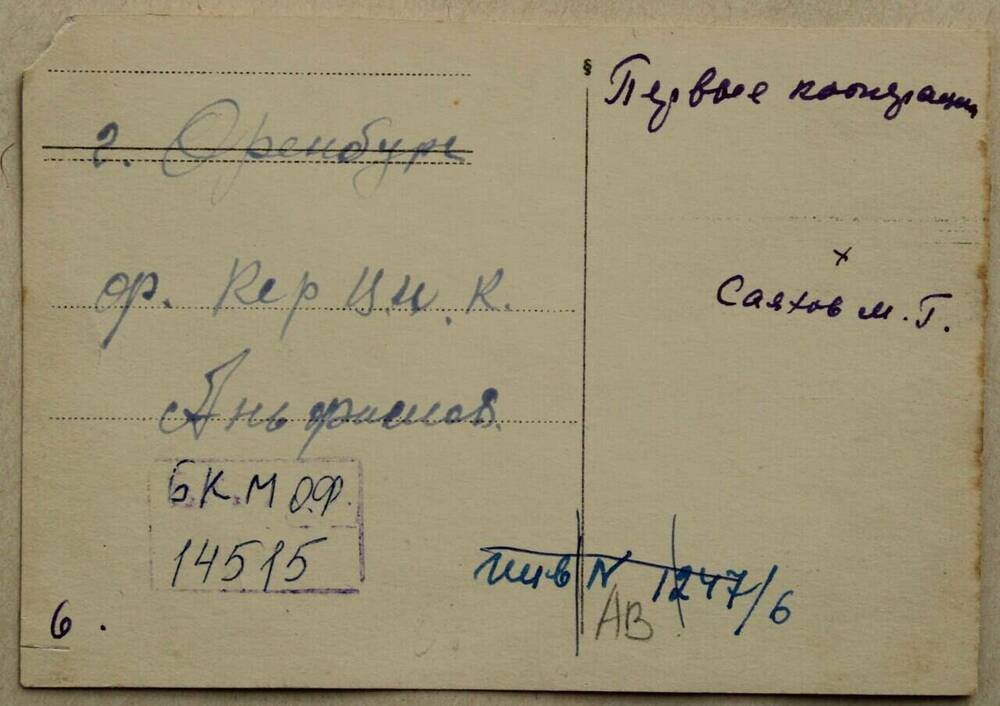 г. Оренбург
ф. Кер Ц.и.К.
Аньфимов
Б.К.М О.Ф.
14515
6.
§
Первые кооперации
x
Саяхов М.Г.
инв N 1247/6
АВ